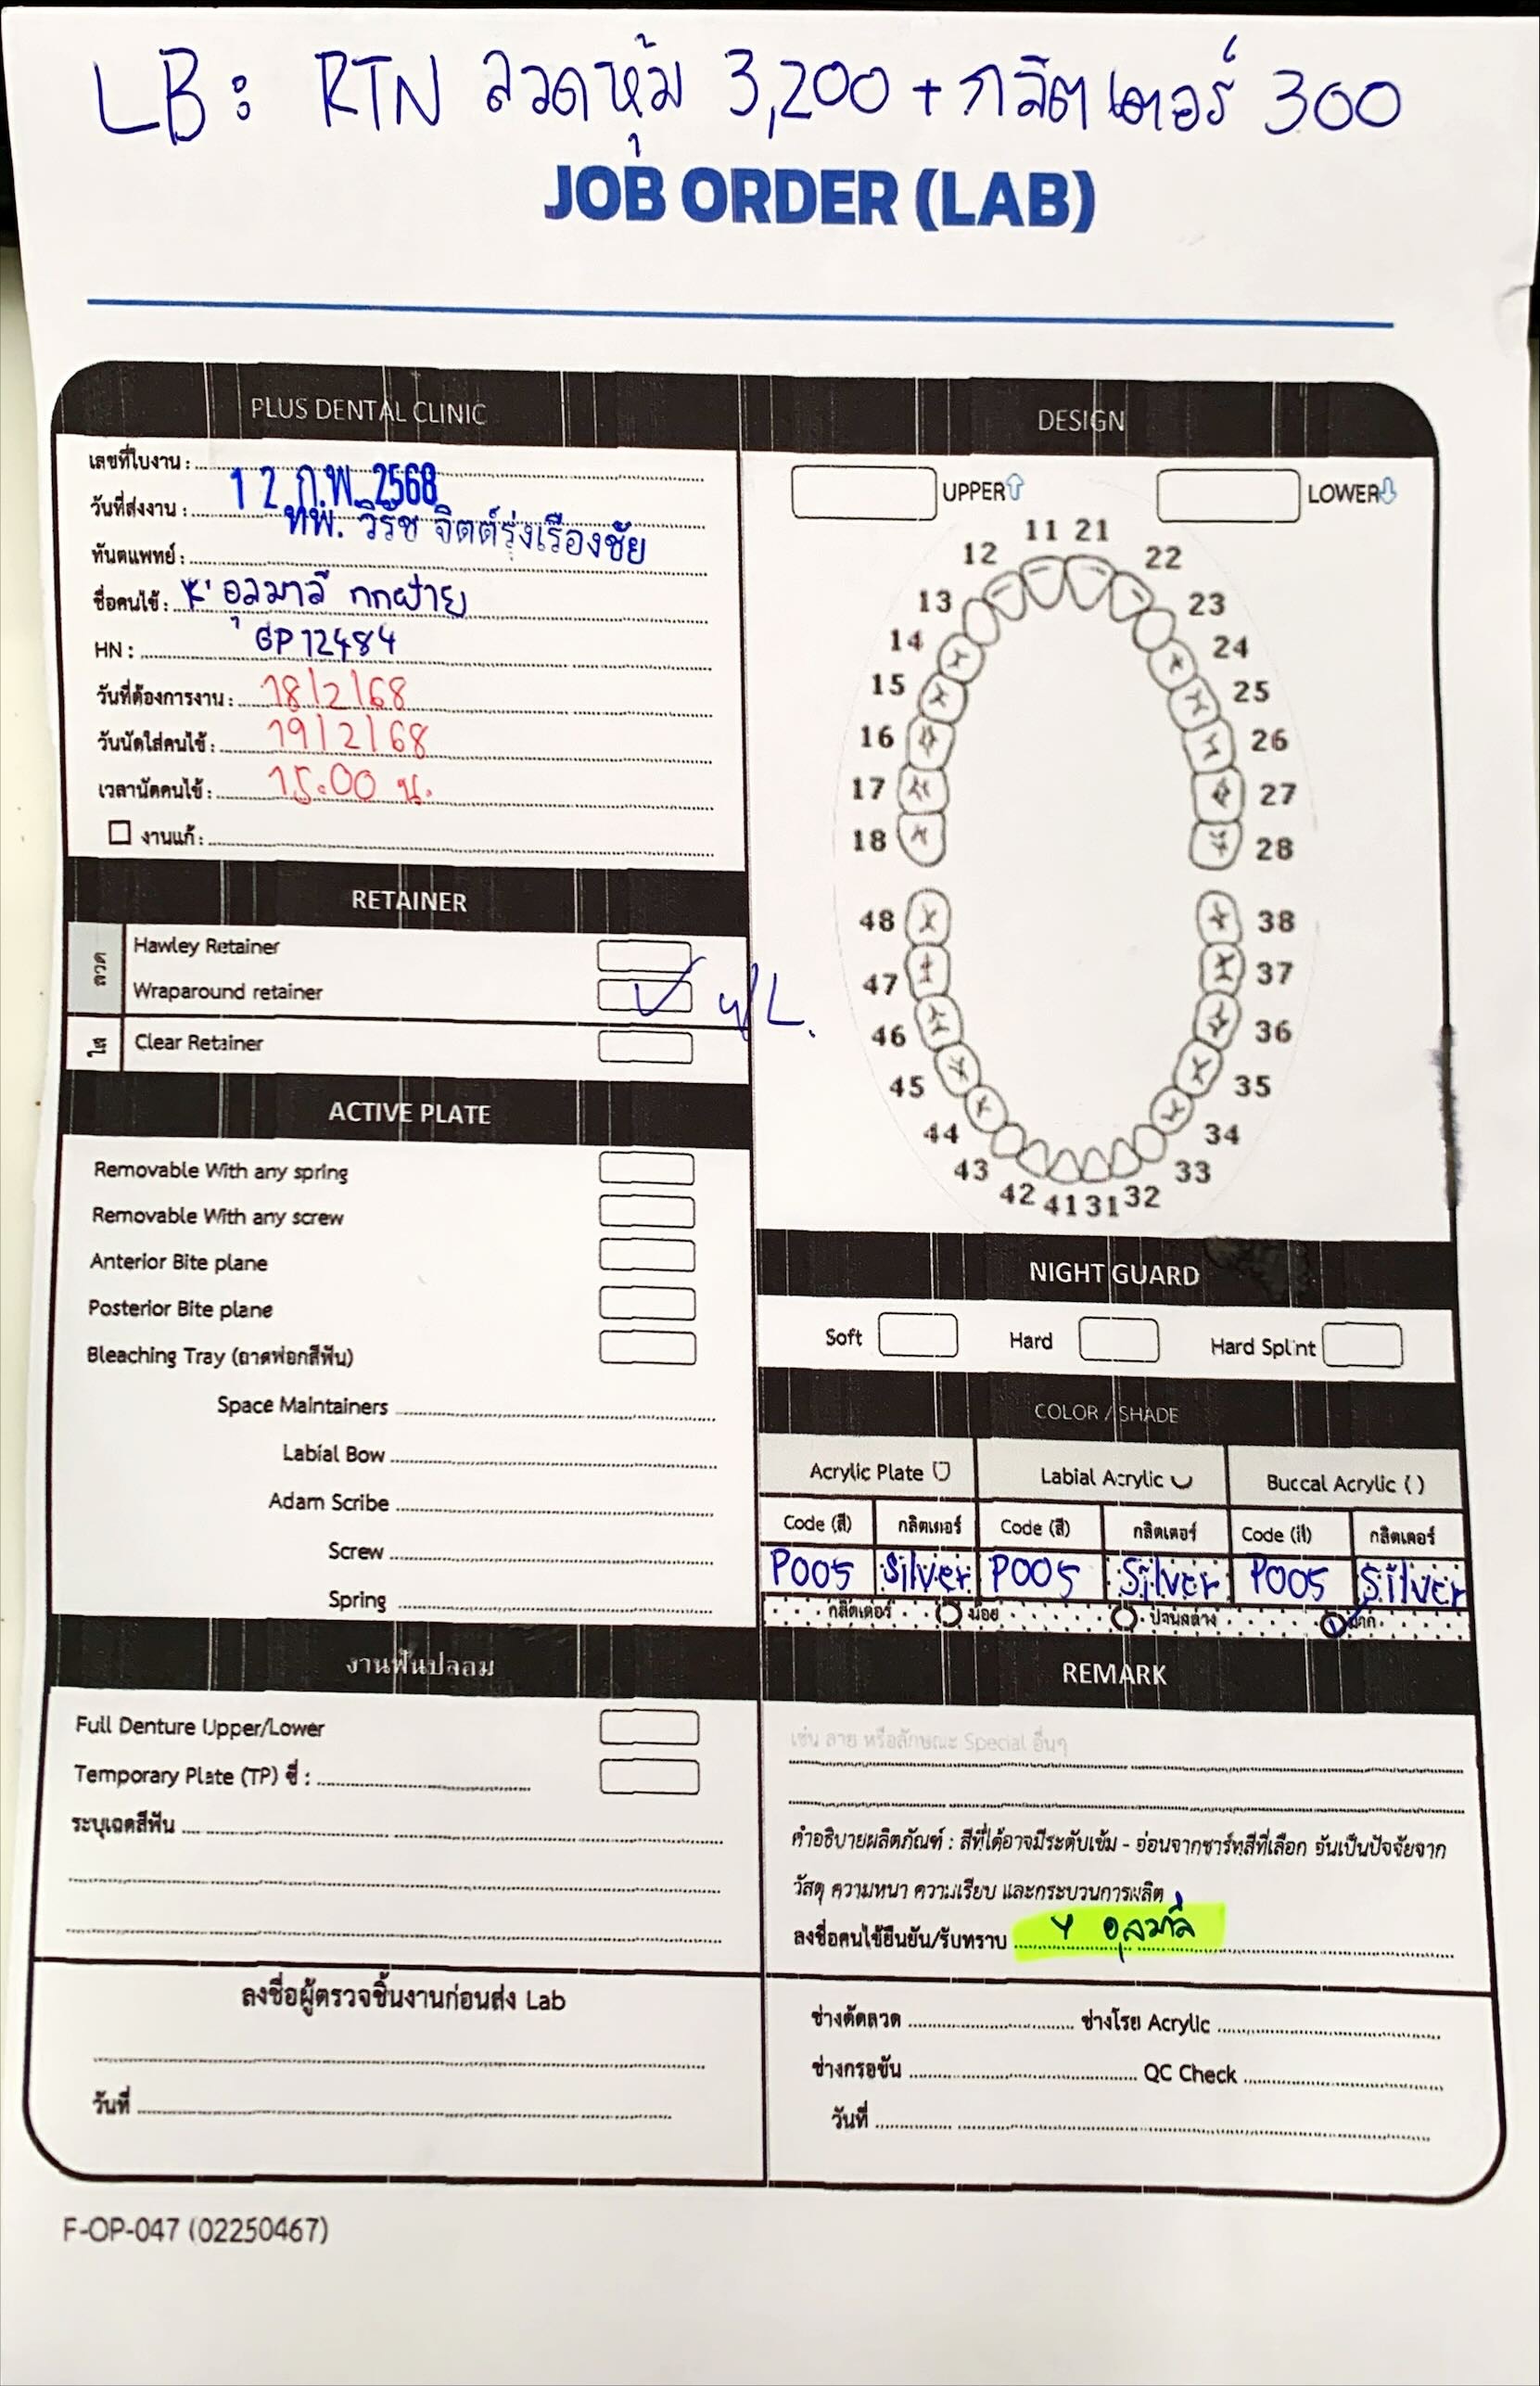 LB: RTN ลวดหุ้ม 3,200 + กลิตเตอร์ 300
JOB ORDER (LAB)
PLUS DENTAL CLINIC
เลขที่ใบงาน :
วันที่ส่งงาน : 12 ก.พ. 2568
ทันตแพทย์ : ทพ. วิรัช จิตต์รุ่งเรืองชัย
ชื่อคนไข้ : K' อุลมาลี กกฝ่าย
HN : GP12484
วันที่ต้องการงาน : 18/2/68
วันนัดใส่คนไข้ : 19/2/68
เวลานัดคนไข้ : 15:00 น.
งานแก้ :
RETAINER
ลวด
Hawley Retainer
Wraparound retainer ✓ U/L.
ใส
Clear Retainer
ACTIVE PLATE
Removable With any spring
Removable With any screw
Anterior Bite plane
Posterior Bite plane
Bleaching Tray (ถาดฟอกสีฟัน)
Space Maintainers
Labial Bow
Adam Scribe
Screw
Spring
งานฟันปลอม
Full Denture Upper/Lower
Temporary Plate (TP) ซี่ :
ระบุเฉดสีฟัน
ลงชื่อผู้ตรวจชิ้นงานก่อนส่ง Lab
วันที่
DESIGN
UPPER LOWER
11 21
12 22
13 23
14 24
15 25
16 26
17 27
18 28
48 38
47 37
46 36
45 35
44 34
43 33
42 41 31 32
NIGHT GUARD
Soft Hard Hard Splint
COLOR / SHADE
Acrylic Plate Labial Acrylic Buccal Acrylic ( )
Code (สี) กลิตเตอร์ Code (สี) กลิตเตอร์ Code (สี) กลิตเตอร์
P005 Silver P005 Silver P005 Silver
กลิตเตอร์ น้อย ปานกลาง มาก
REMARK
เช่น ลาย หรือลักษณะ Special อื่นๆ
คำอธิบายผลิตภัณฑ์ : สีที่ได้อาจมีระดับเข้ม - อ่อนจากชาร์ทสีที่เลือก อันเป็นปัจจัยจาก
วัสดุ ความหนา ความเรียบ และกระบวนการผลิต
ลงชื่อคนไข้ยืนยัน/รับทราบ อุลมาลี
ช่างดัดลวด ช่างโรย Acrylic
ช่างกรอขัน QC Check
วันที่
F-OP-047 (02250467)